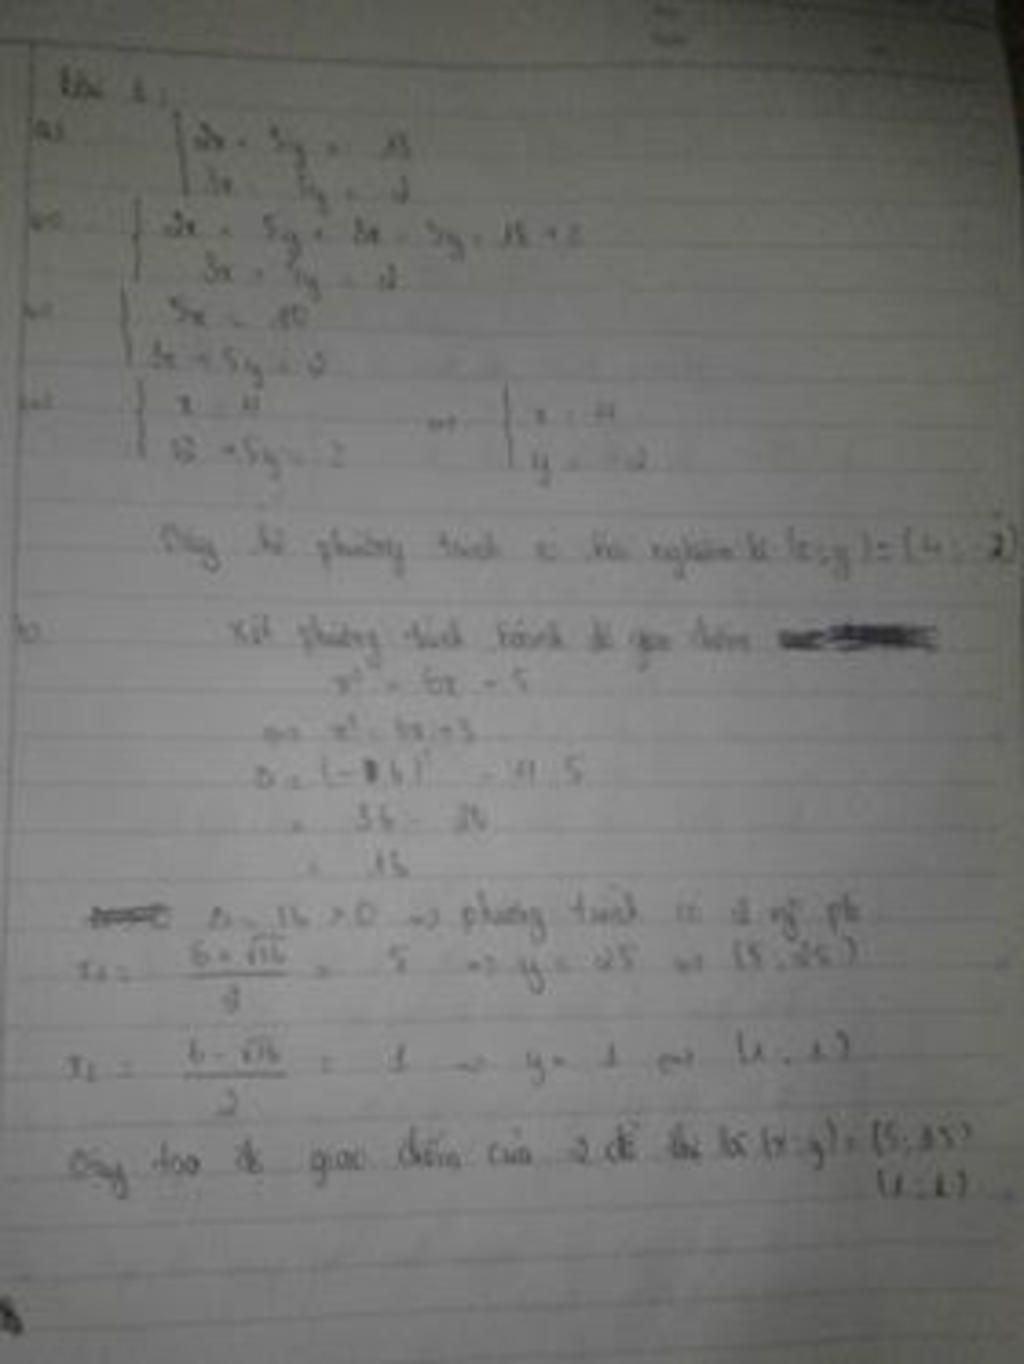 Bài 1:
a) 2x - 5y = 18
3x 5y = 2
<=> 2x - 5y + 3x + 5y = 18 + 2
3x + 5y = 2
<=> 5x = 20
3x + 5y = 2
<=> x = 4 <=> x = 4
12 + 5y = 2 y = -2
Vậy hệ phương trình có nghiệm là (x; y) = (4; -2)
b) Xét phương trình hoành độ giao điểm
x² = 6x - 5
<=> x² - 6x + 5
Δ = (-6)² - 4.5
= 36 - 20
= 16
Δ = 16 > 0 => phương trình có 2 ng pb
x₁ = (6 + √16)/2 = 5 => y = 25 => (5; 25)
x₂ = (6 - √16)/2 = 1 => y = 1 => (1; 1)
Vậy tọa độ giao điểm của 2 đồ thị là (x; y) = (5; 25)
(1; 1)